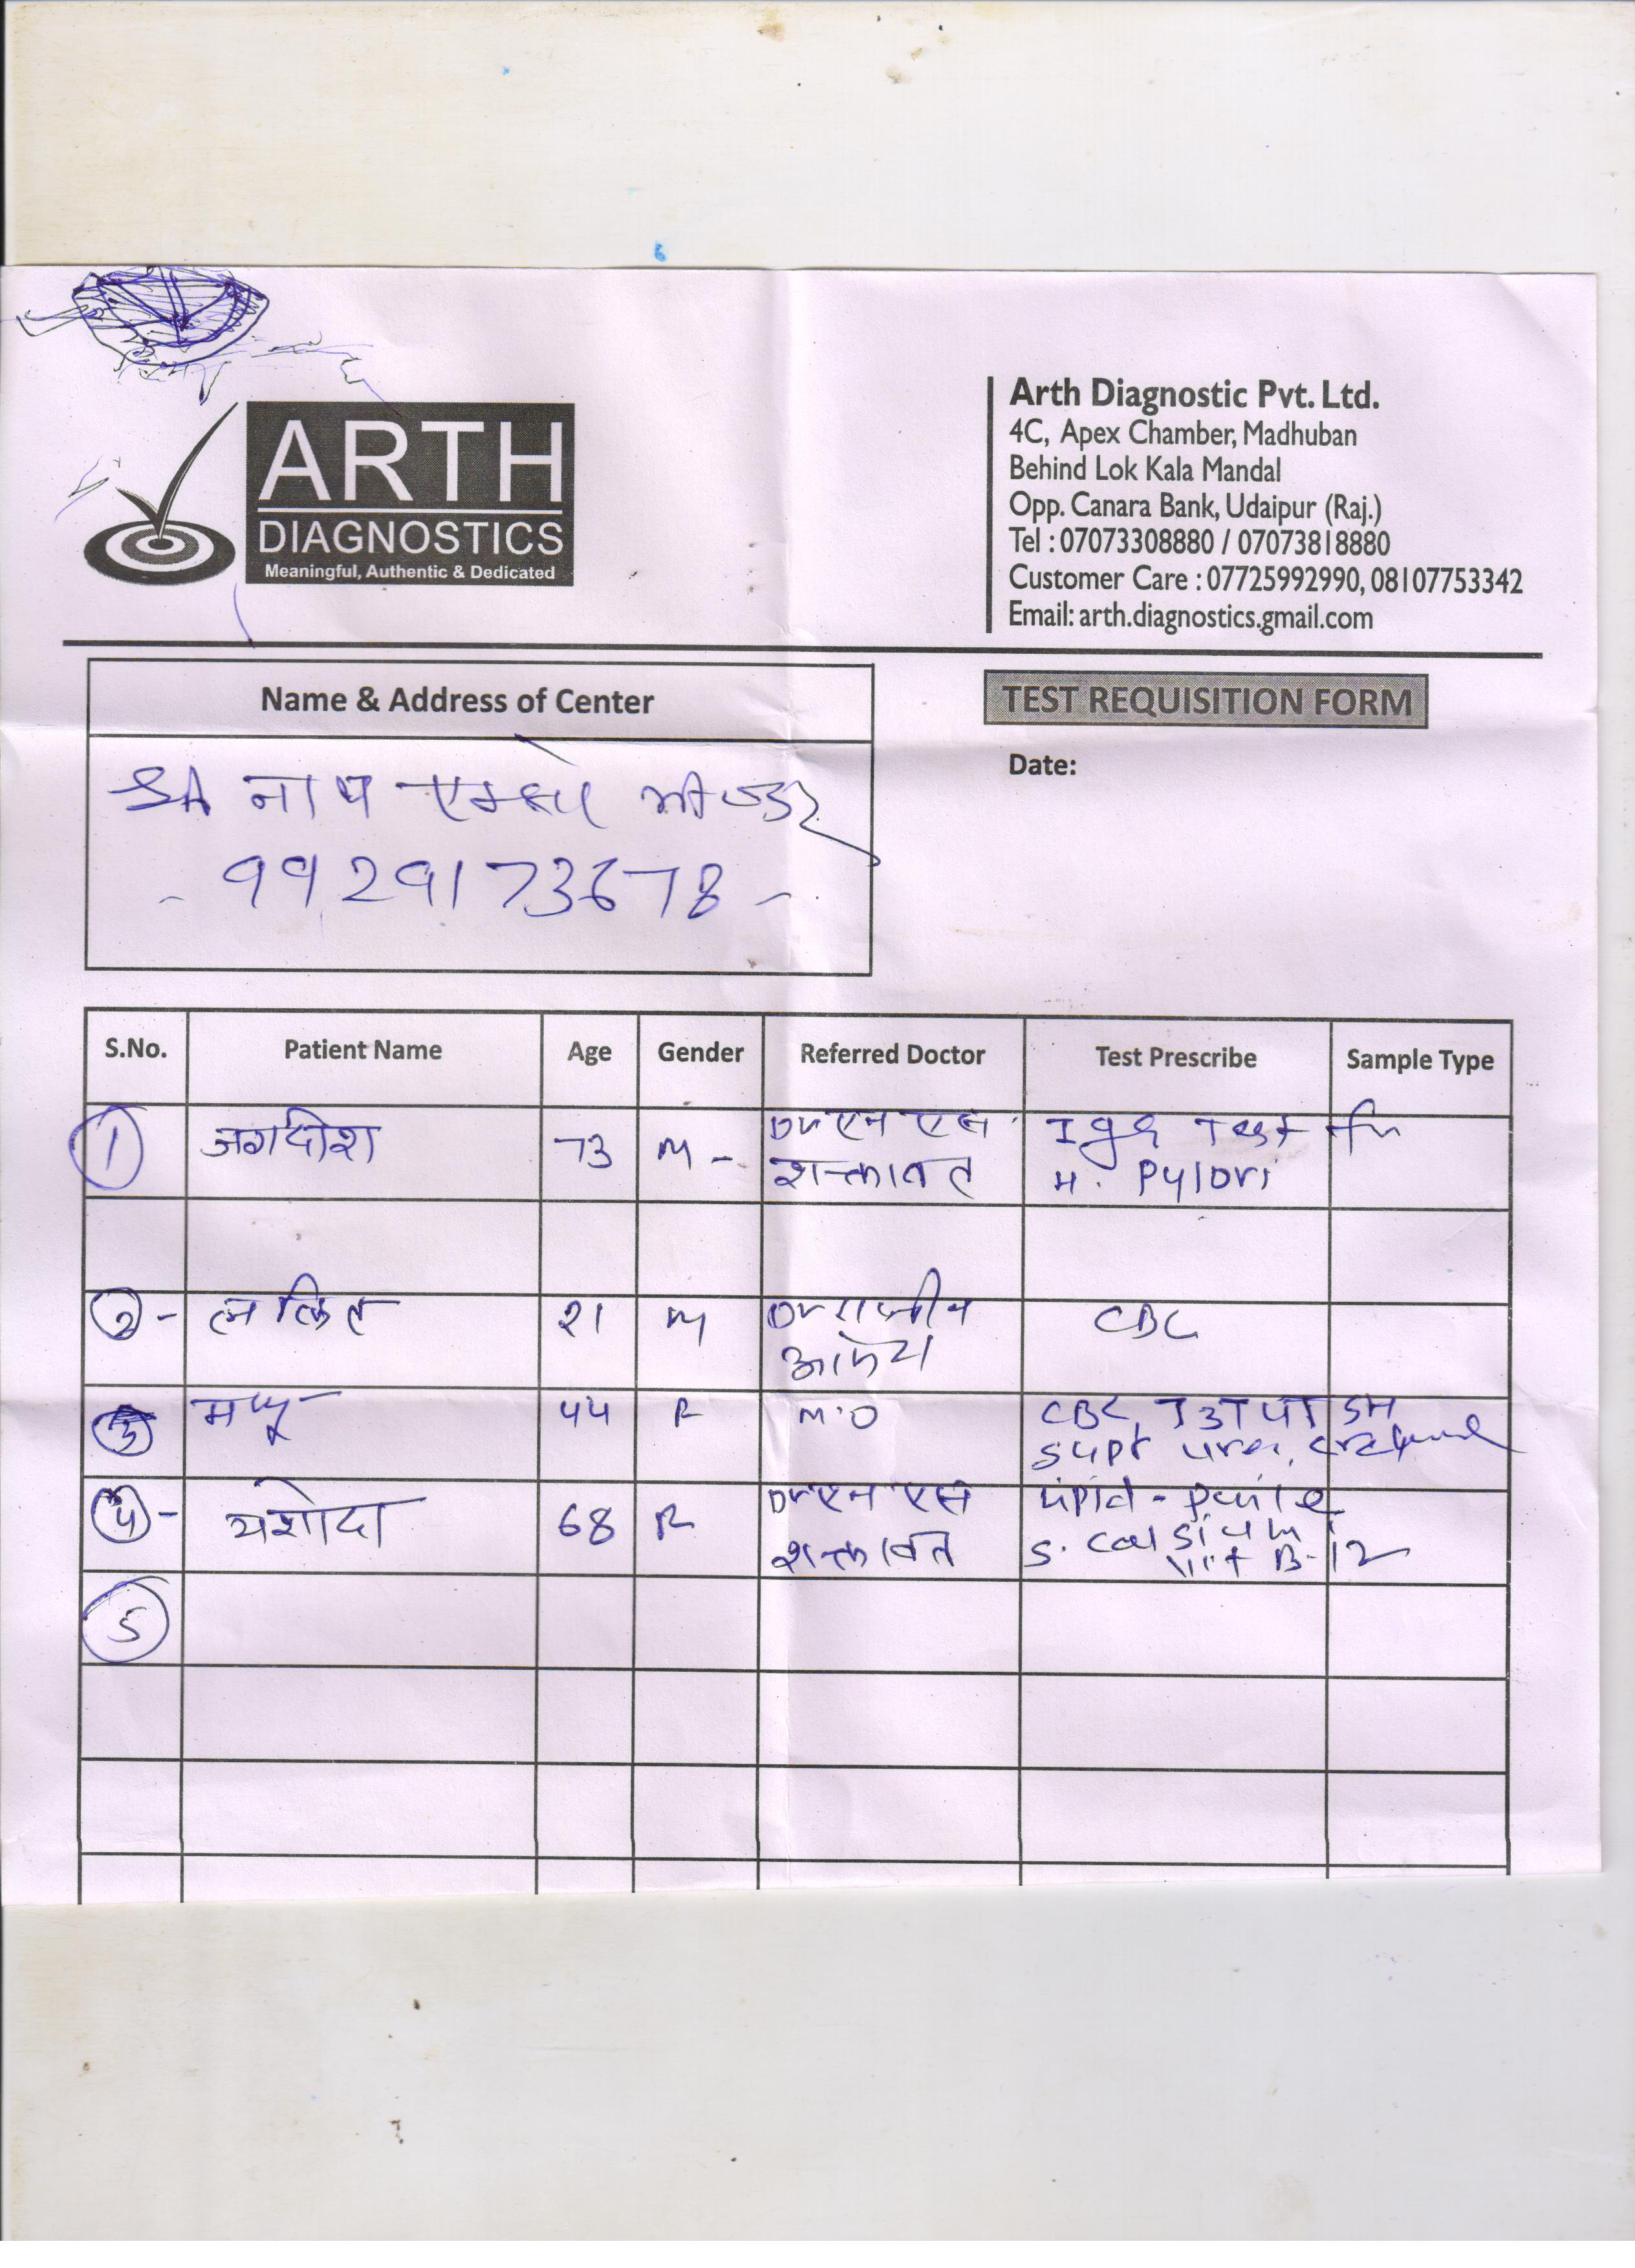 ARTH
DIAGNOSTICS
Meaningful, Authentic & Dedicated
Arth Diagnostic Pvt. Ltd.
4C, Apex Chamber, Madhuban
Behind Lok Kala Mandal
Opp. Canara Bank, Udaipur (Raj.)
Tel : 07073308880 / 07073818880
Customer Care : 07725992990, 08107753342
Email: arth.diagnostics.gmail.com
Name & Address of Center
TEST REQUISITION FORM
Date:
श्री नाथ
- 9929173678 -
S.No. Patient Name Age Gender Referred Doctor Test Prescribe Sample Type
1 जगदीश 73 M - Dr एन एस शक्तावत IgG Test for H. Pylori
2 - ललित 21 M Dr CBC
3 44 F M.O CBC, T3T4TSH
urea,
4 - यशोदा 68 F Dr एन एस शक्तावत Lipid -
S. Calsium
Vit B-12
5